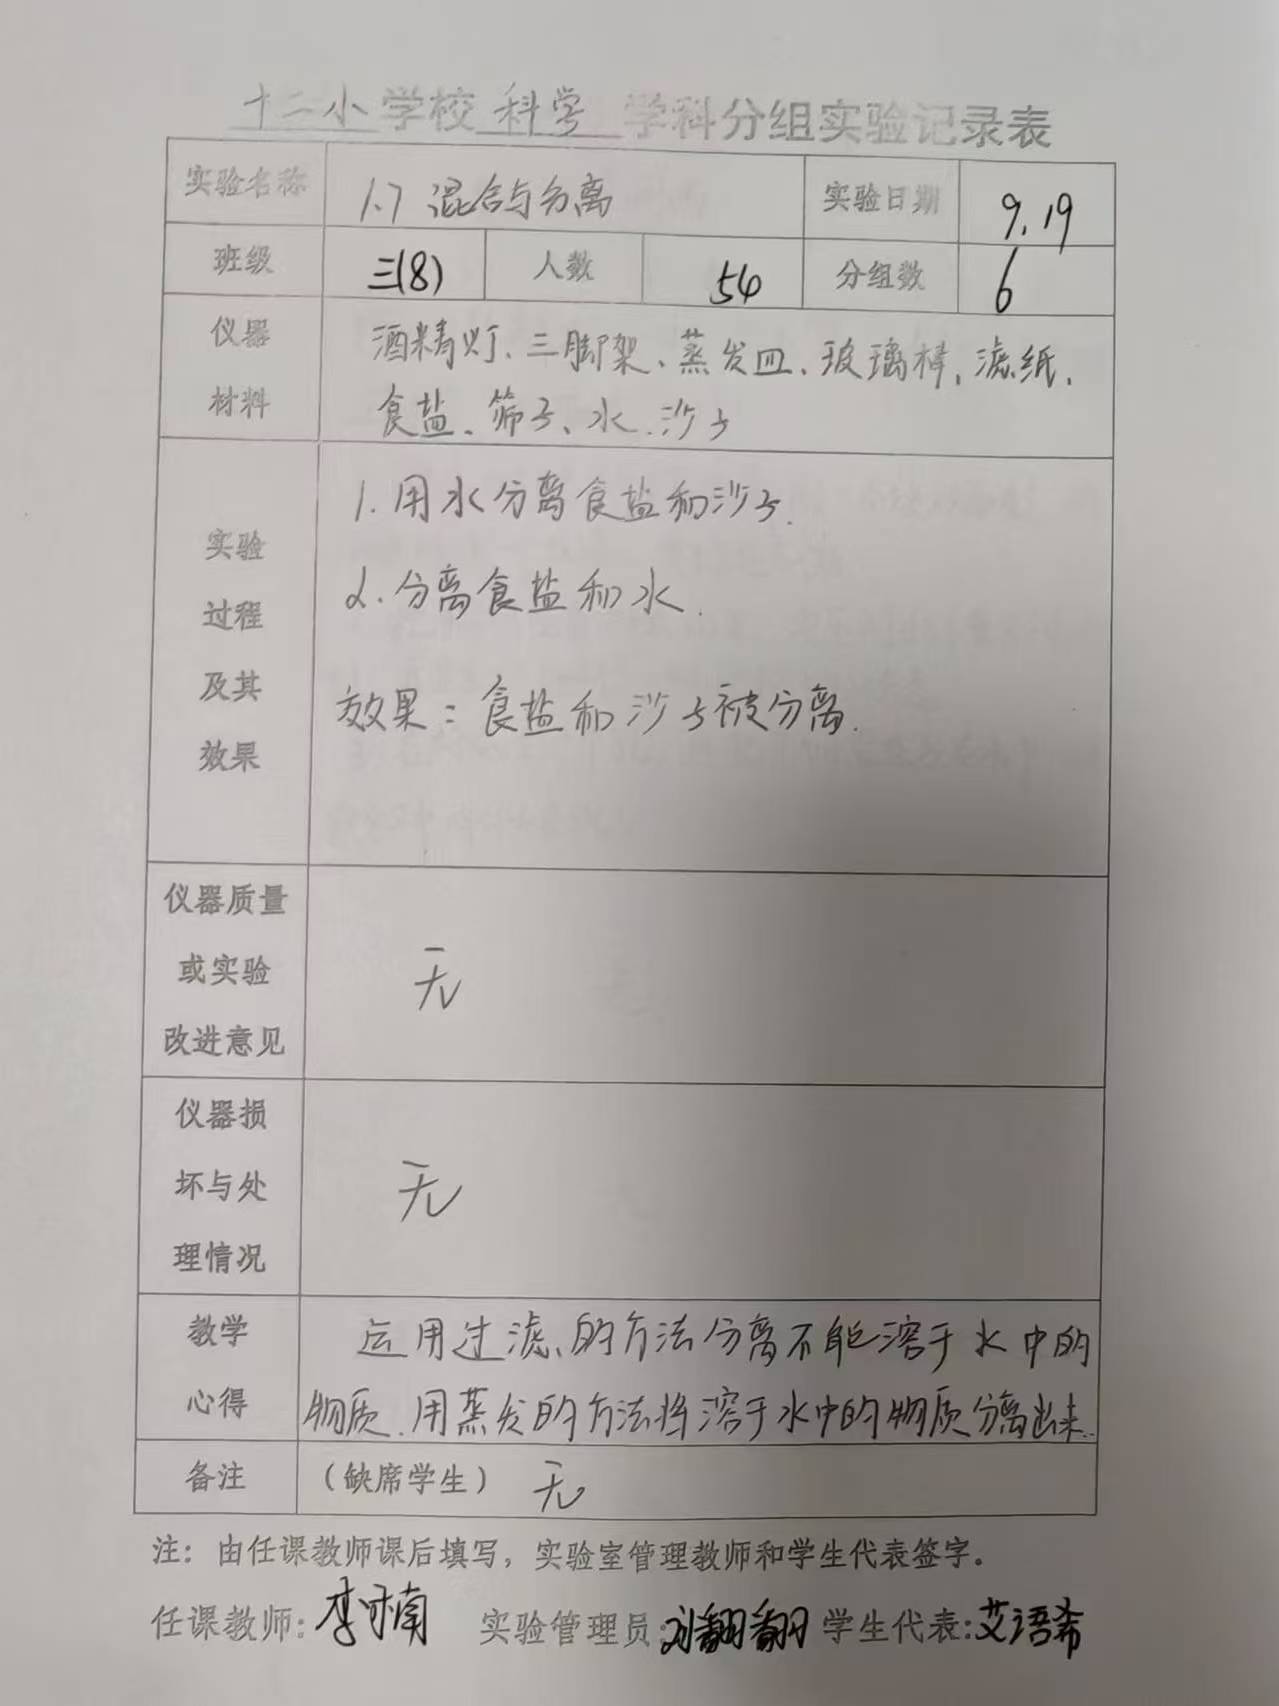 十二小学校 科学 学科分组实验记录表
实验名称 1.7 混合与分离 实验日期 9.19
班级 三(8) 人数 54 分组数 6
仪器材料 酒精灯、三脚架、蒸发皿、玻璃棒、滤纸、
食盐、筛子、水、沙子
实验过程及其效果
1.用水分离食盐和沙子.
2.分离食盐和水.
效果:食盐和沙子被分离.
仪器质量或实验改进意见 无
仪器损坏与处理情况 无
教学心得 运用过滤的方法分离不能溶于水中的
物质.用蒸发的方法将溶于水中的物质分离出来.
备注 (缺席学生) 无
注:由任课教师课后填写,实验室管理教师和学生代表签字。
任课教师: 实验管理员:刘翻翻 学生代表:艾语希